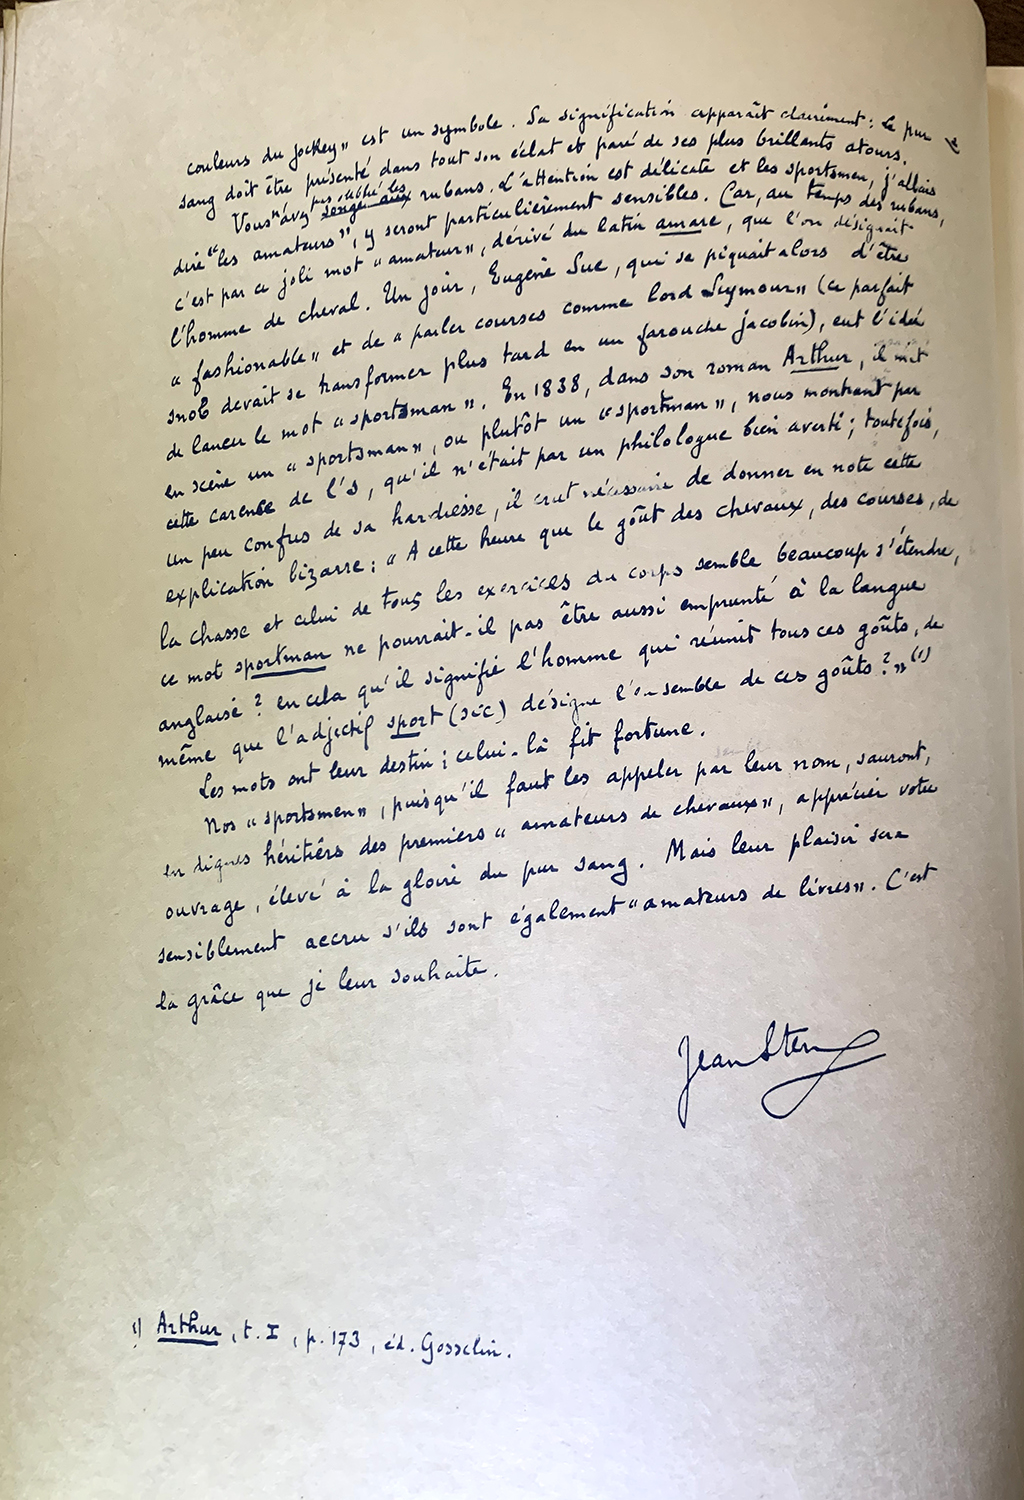 couleurs du jockey" est un symbole. Sa signification apparaît clairement : le pur
sang doit être présenté dans tout son éclat et paré de ses plus brillants atours.
Vous n'avez pas oublié les rubans. L'attention est délicate et les sportsmen, j'allais
dire "les amateurs", y seront particulièrement sensibles. Car, au temps des rubans,
c'est par ce joli mot "amateur", dérivé du latin amare, que l'on désignait
l'homme de cheval. Un jour, Eugène Sue, qui se piquait alors d'être
"fashionable" et de "parler courses comme lord Seymour" (ce parfait
snob devait se transformer plus tard en un farouche jacobin), eut l'idée
de lancer le mot "sportsman". En 1838, dans son roman Arthur, il mit
en scène un "sportsman", ou plutôt un "sportman", nous montrant par
cette carence de l's, qu'il n'était pas un philologue bien averti ; toutefois,
un peu confus de sa hardiesse, il crut nécessaire de donner en note cette
explication bizarre : "A cette heure que le goût des chevaux, des courses, de
la chasse et celui de tous les exercices du corps semble beaucoup s'étendre,
ce mot sportman ne pourrait-il pas être aussi emprunté à la langue
anglaise ? en cela qu'il signifie l'homme qui réunit tous ces goûts, de
même que l'adjectif sport (sic) désigne l'ensemble de ces goûts ?" (1)
Les mots ont leur destin ; celui-là fit fortune.
Nos "sportsmen", puisqu'il faut les appeler par leur nom, sauront,
en dignes héritiers des premiers "amateurs de chevaux", apprécier votre
ouvrage, élevé à la gloire du pur sang. Mais leur plaisir sera
sensiblement accru s'ils sont également "amateurs de livres". C'est
la grâce que je leur souhaite.
Jean Stern
1) Arthur, t. I, p. 173, éd. Gosselin.